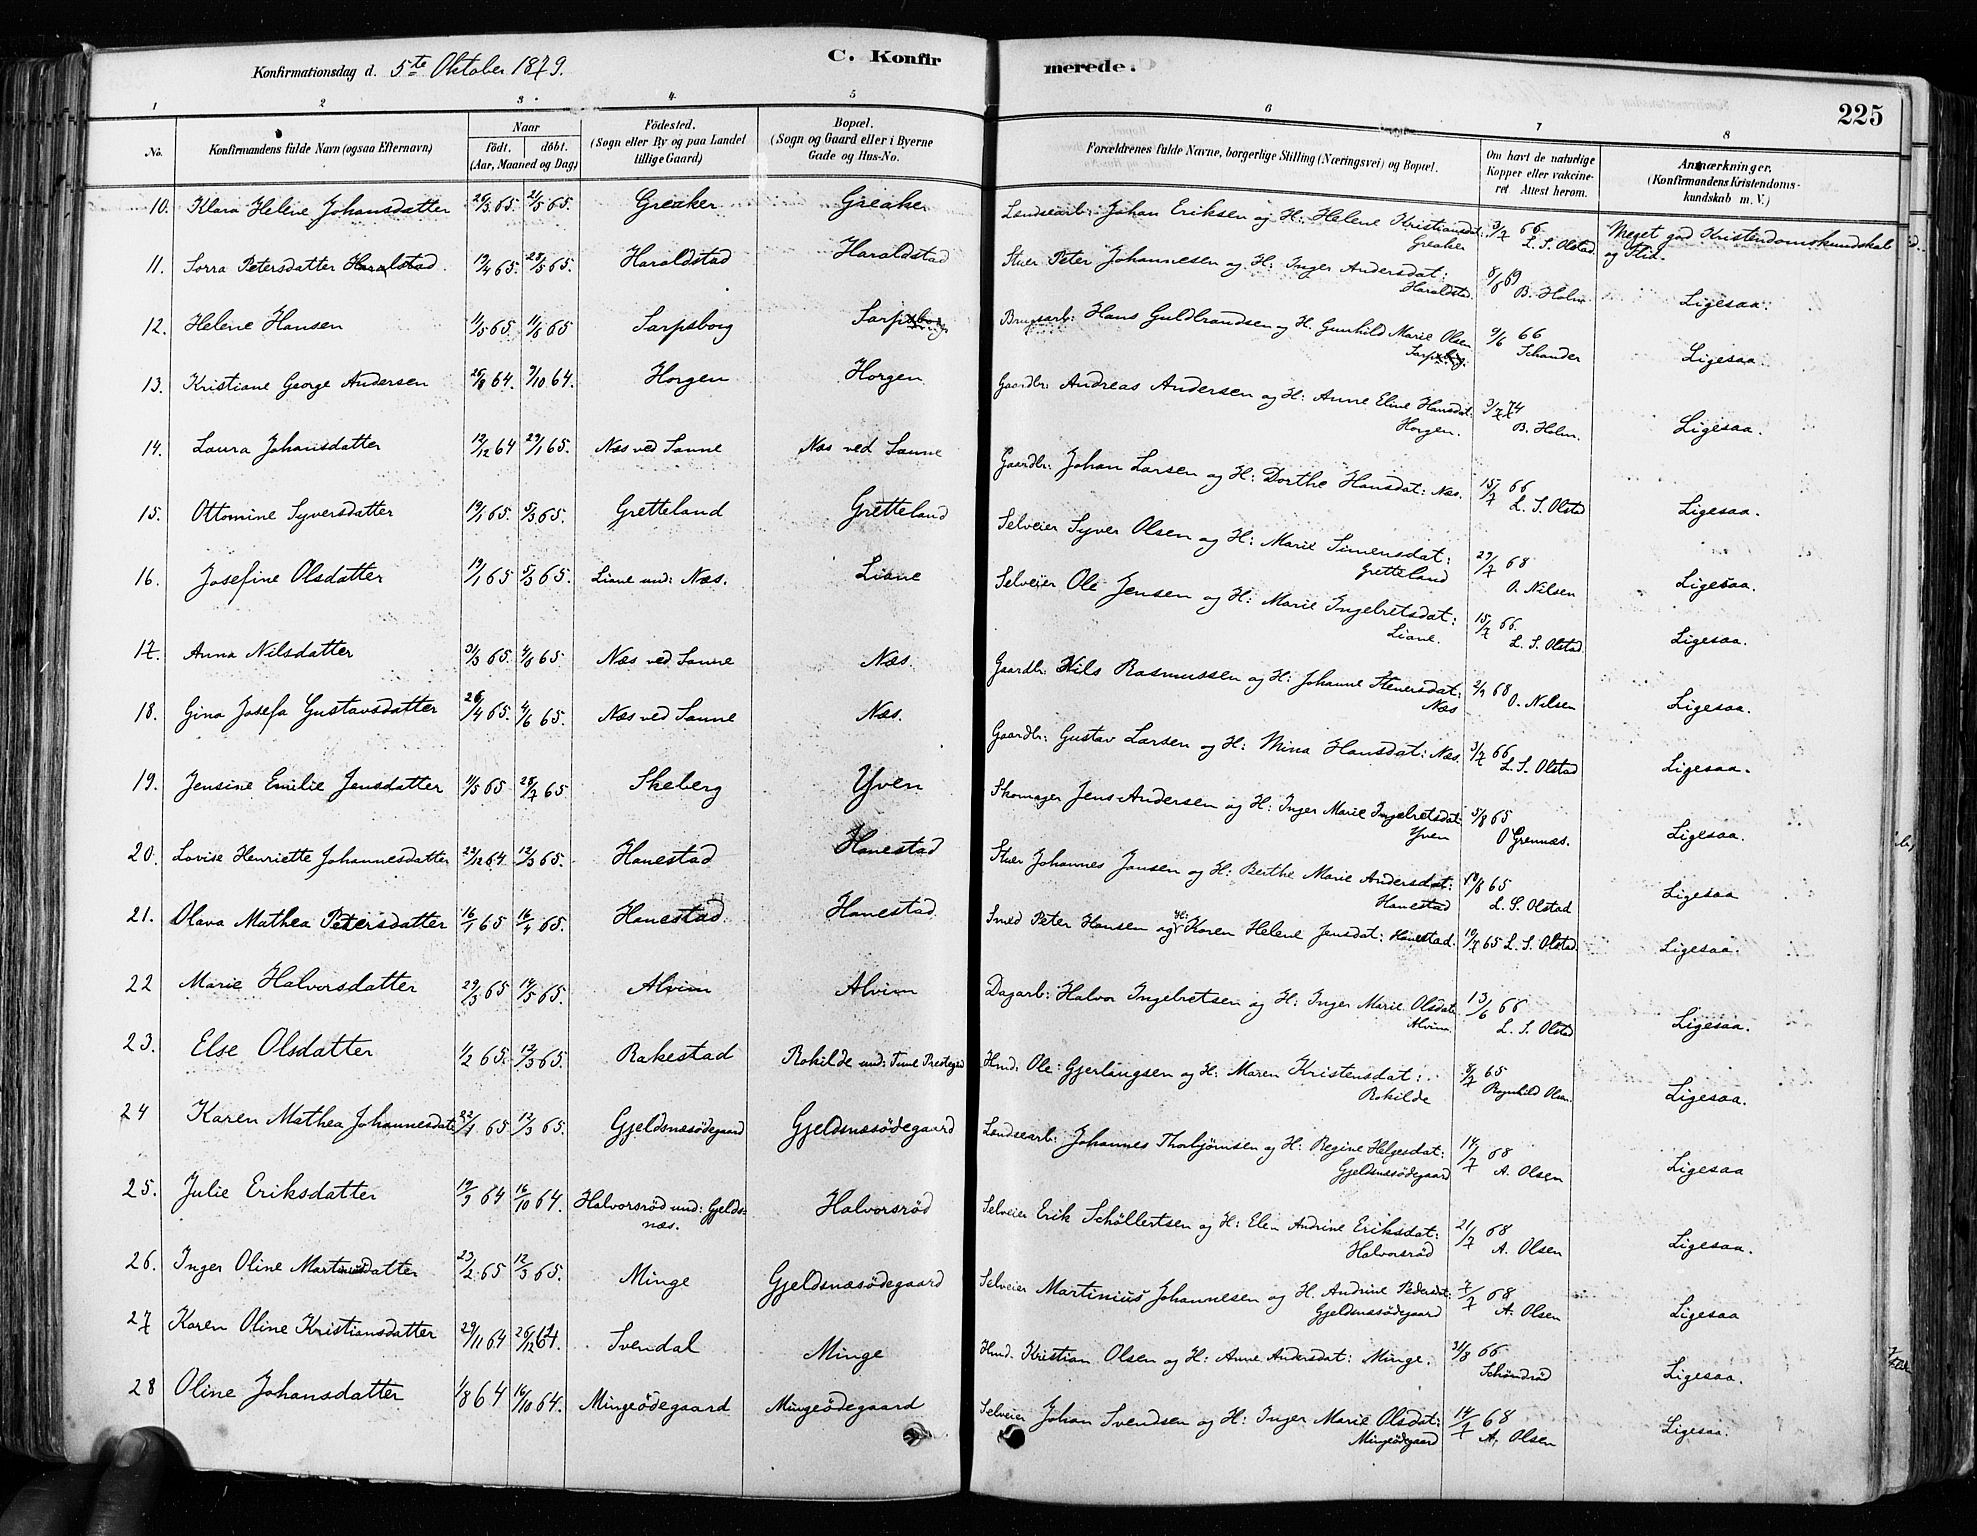 Konfirmationsdag d. 5te Oktober 1879.
C. Konfir
merede.
225
1 2 3 4 5 6 7 8
No.
Konfirmandens fulde Navn (ogsaa Efternavn)
Naar
födt. döbt.
(Aar, Maaned og Dag)
Födested.
(Sogn eller By og paa Landet
tillige Gaard)
Bopæl.
(Sogn og Gaard eller i Byerne
Gade og Hus-No.
Forældrenes fulde Navne, borgerlige Stilling (Næringsvei) og Bopæl.
Om havt de naturlige
Kopper eller vakcine-
ret Attest herom.
Anmærkninger.
(Konfirmandens Kristendoms-
kundskab m. V.)
10. Klara Helene Johansdatter 65. 21/5 65. Greaker Greaker Lendsearb: Johan Eriksen og H: Helene Kristiansdat: 3/7 66 Meget god Kristendomskundskab
Greaker L. S. Olstad og Flid.
11. Petersdatter Haralstad 19/4 65. 28/5 65. Haraldstad Haraldstad Peter Johannesen og H: Inger Andersdat: 8/6 69
Haraldstad. B. Holm Ligesaa.
12. Helene Hansen 11/5 65. 65 Sarpsborg Sarpsborg Brugsarb: Hans Guldbrandsen og H. Gunhild Marie Olsen 9/6 66
Sarpsborg. Schander Ligesaa.
13. Kristiane George Andersen 64. 9/10 64. Horgen Horgen Gaardbr: Andreas Andersen og H: Anne Eline Hansdat: 3/7 74
Horgen. B. Holm. Ligesaa.
14. Laura Johansdatter 12/12 64 29/1 65. Næs ved Sanne Næs ved Sanne Gaardbr: Johan Larsen og H: Dorthe Hansdat: Næs. 15/7 66
L. S. Olstad Ligesaa.
15. Ottomine Syversdatter 19/1 65. 5/3 65. Gretteland Gretteland Selveier Syver Olsen og H: Marie Simensdat: 29/7 68
Gretteland O. Nilsen Ligesaa.
16. Josefine Olsdatter 19/1 65 5/3 65. Liane und: Næs. Liane Selveier Ole Jensen og H: Marie Ingebretsdat: 15/7 66.
Liane. L. S. Olstad Ligesaa.
17. Anna Nilsdatter 31/3 65. 65. Næs ved Sanne Næs. Gaardbr: Nils Rasmussen og H: Johanne Stenersdat: 68
Næs O. Nilsen Ligesaa.
18. Gina Josefa Gustavsdatter 26/4 65. 4/6 65. Næs ved Sanne Næs. Gaardbr: Gustav Larsen og H: Mina Hansdat: Næs. 3/7 66
L. S. Olstad Ligesaa.
19. Jensine Emilie Jensdatter 11/5 65 65. Skeberg Yven Skomager Jens Andersen og H: Inger Marie Ingebretsdat 5/8 65
Yven O Grennæs. Ligesaa.
20. Lovise Henriette Johannesdatter 64. 12/3 65. Hanestad Hanestad Johannes Jansen og H: Berthe Marie Andersdat: 65
Hanestad L. S. Olstad Ligesaa
21. Olava Mathea Petersdatter 16/1 65 16/4 65. Hanestad Hanestad Smed Peter Hansen og H: Karen Helene Jensdat: Hanestad. 19/7 65 L. S. Olstad Ligesaa.
22 Marie Halvorsdatter 29/3 65 14/5 65. Alvim Alvim Dagarb: Halvor Ingebretsen og H: Inger Marie Olsdat: 13/6 66
Alvim. L. S. Olstad Ligesaa.
23. Else Olsdatter 1/2 65. 12/3 65. Rakestad Rokilde und: Tune Prestegd Hmd: Ole Gjerlaugsen og H: Maren Kristensdat: 65
Rokilde Ragnhild Olsen. Ligesaa.
24 Karen Mathea Johannesdat: 22/1 65 12/3 65. Gjeldsnæsödegaard Gjeldsnæsödegaard Lendsearb: Johannes Thorbjörnsen og H: Regine Helgesdat: 14/7 68
Gjeldsnæsödegaard A. Olsen Ligesaa
25. Julie Eriksdatter 19/3 64 16/10 64. Halvorsröd und: Gjelds- Halvorsröd Selveier Erik Schöllertsen og H: Elen Andrine Eriksdat: 21/7 68
næs. Halvorsröd A. Olsen Ligesaa.
26. Inger Oline Martinusdatter 23/2 65 12/3 65. Minge Gjeldsnæsödegaard Selveier Martinius Johannesen og H. Andrine Pedersdat: 7/7 68
Gjeldsnæsödegaard A. Olsen Ligesaa
27 Karen Oline Kristiansdatter 29/11 64 26/12 64. Svendal Minge Hmd. Kristian Olsen og H: Anne Andersdat: Minge. 66
Ligesaa.
28 Oline Johansdatter 1/8 64 16/10 64. Mingeödegaard Mingeödegaard Selveier Johan Svendsen og H: Inger Marie Olsdat: 14/7 68
Mingeödegaard A. Olsen Ligesaa.